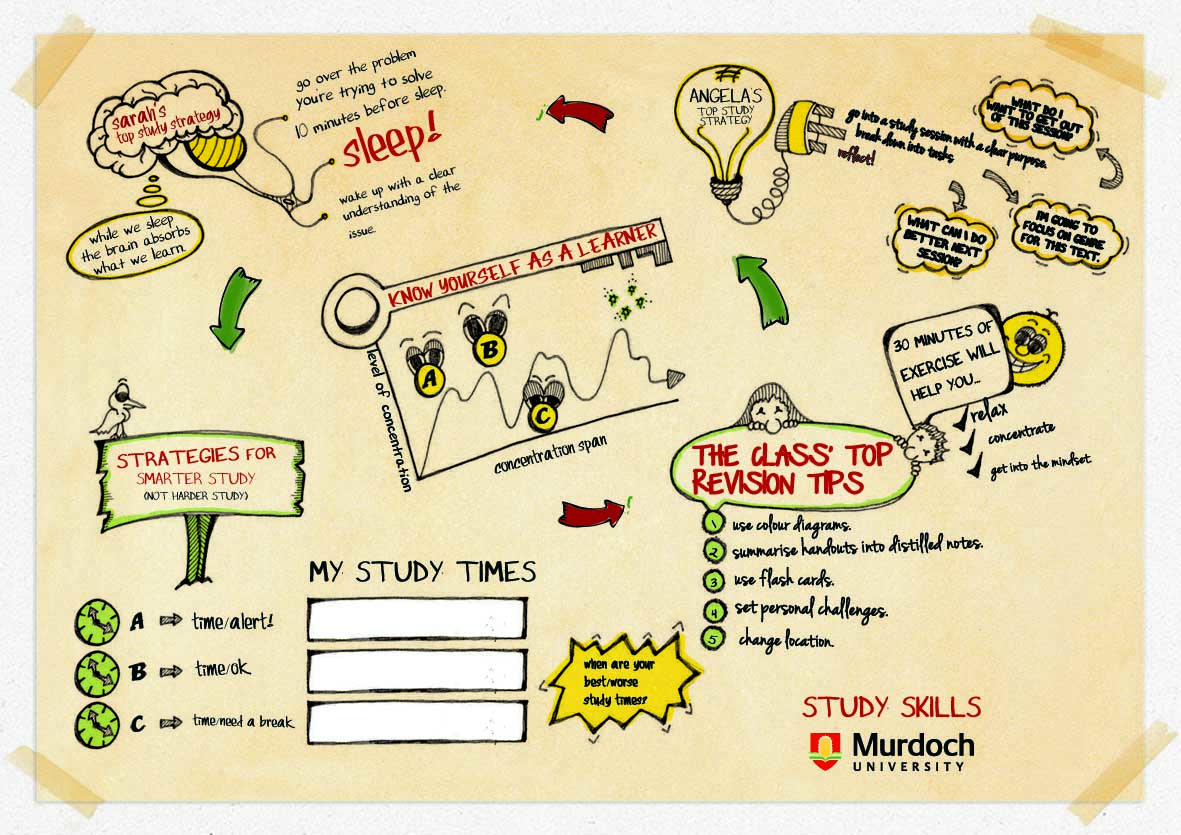 sarah's
top study strategy
go over the problem
you're trying to solve
10 minutes before sleep.
sleep!
wake up with a clear
understanding of the
issue.
while we sleep
the brain absorbs
what we learn.
ANGELA'S
TOP STUDY
STRATEGY
go into a study session with a clear purpose.
break down into tasks
reflect!
WHAT DO I
WANT TO GET OUT
OF THIS SESSION?
I'M GOING TO
FOCUS ON GENRE
FOR THIS TEXT.
WHAT CAN I DO
BETTER NEXT
SESSION?
KNOW YOURSELF AS A LEARNER
level of concentration
A
B
C
concentration span
30 MINUTES OF
EXERCISE WILL
HELP YOU...
relax
concentrate
get into the mindset
THE CLASS' TOP
REVISION TIPS
1 use colour diagrams.
2 summarise handouts into distilled notes.
3 use flash cards.
4 set personal challenges.
5 change location.
STRATEGIES FOR
SMARTER STUDY
(NOT HARDER STUDY)
MY STUDY TIMES
A time/alert!
B time/ok
C time/need a break
when are your
best/worse
study times?
STUDY SKILLS
Murdoch
UNIVERSITY